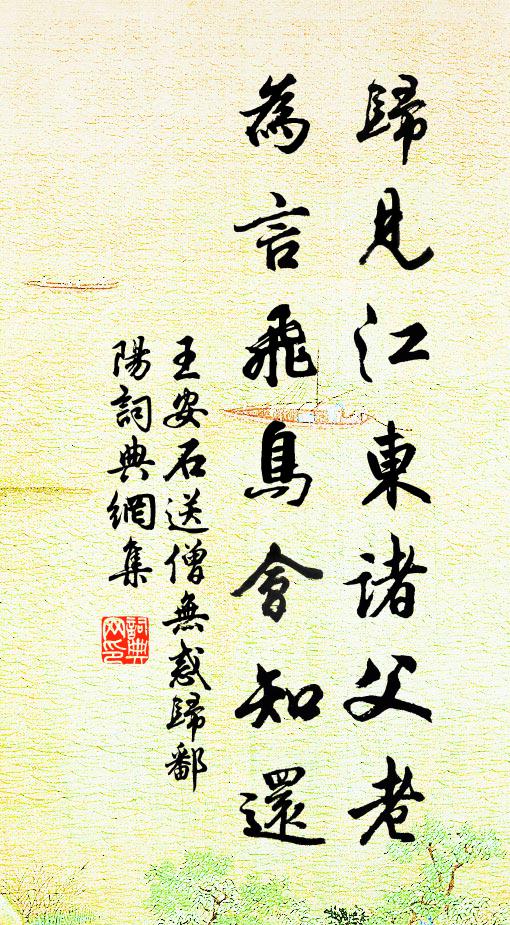 歸見江東諸父老
為言飛鳥會知還
王安石送僧無惑歸鄱
陽詞典網集
詞典
网印